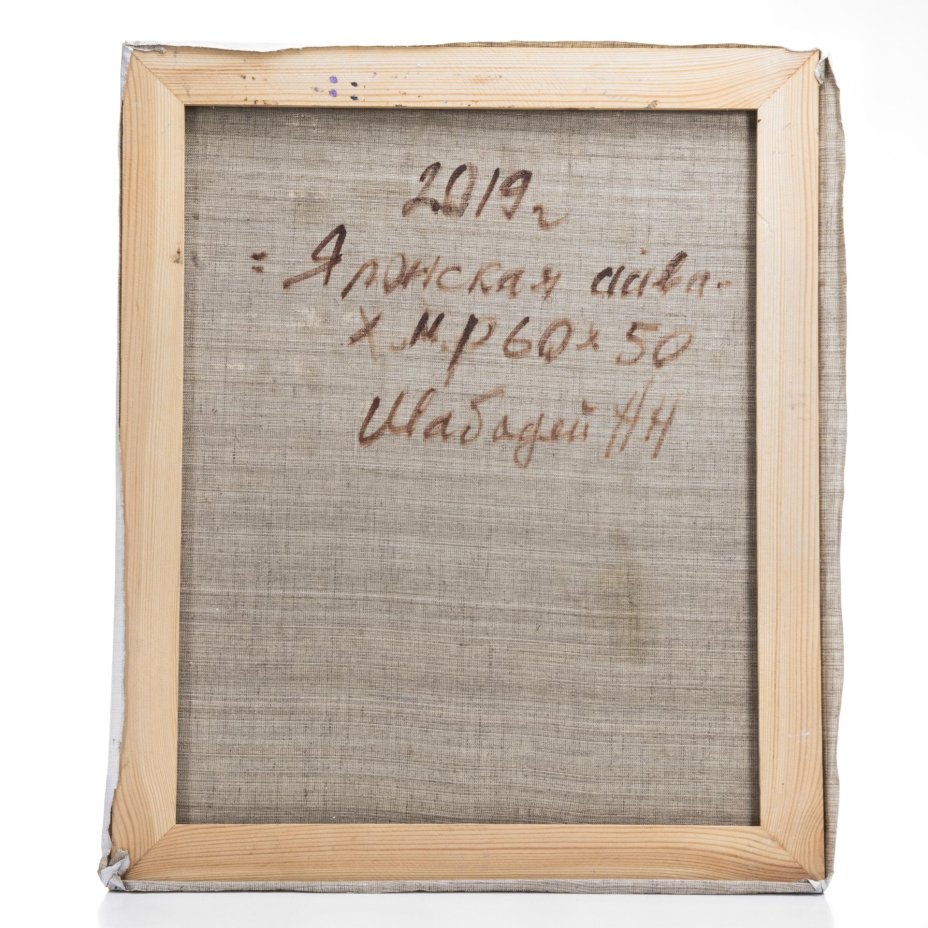 2019г
= Японская айва.
Х.М.Р 60х50
Шабадей НН